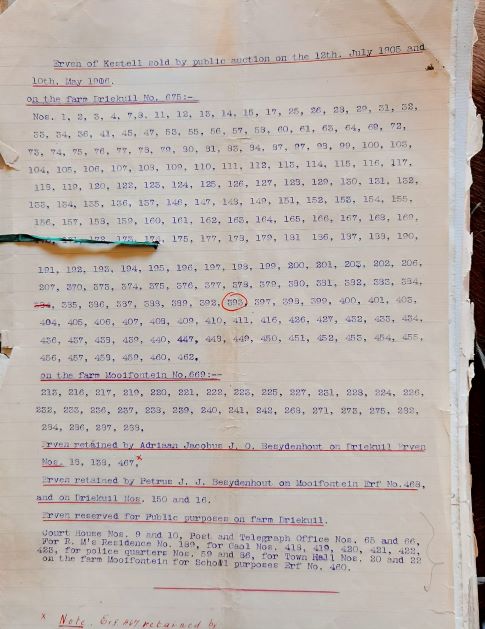 Erven of Kestell sold by public auction on the 12th. July 1905 and
10th. May 1906.
on the farm Driekuil No. 675:-
Nos. 1, 2, 3, 4, 7,8. 11, 12, 13, 14, 15, 17, 25, 26, 28, 29, 31, 32,
33, 34, 36, 41, 45, 47, 53, 55, 56, 57, 58, 60, 61, 63, 64, 69, 72,
73, 74, 75, 76, 77, 78, 79, 80, 81, 83, 84, 87, 97, 98, 99, 100, 103,
104, 105, 106, 107, 108, 109, 110, 111, 112, 113, 114, 115, 116, 117,
118, 119, 120, 122, 123, 124, 125, 126, 127, 128, 129, 130, 131, 132,
133, 134, 135, 136, 137, 146, 147, 148, 149, 151, 152, 153, 154, 155,
156, 157, 158, 159, 160, 161, 162, 163, 164, 165, 166, 167, 168, 169,
172, 173, 174, 175, 177, 178, 179, 181 186, 187, 188, 190,
191, 192, 193, 194, 195, 196, 197, 198, 199, 200, 201, 203, 202, 206,
207, 370, 373, 374, 375, 376, 377, 378, 379, 380, 382, 383, 384,
384, 385, 386, 387, 388, 389, 392, 393, 397, 398, 399, 400, 401, 403,
404, 405, 406, 407, 408, 409, 410, 411, 416, 426, 427, 432, 433, 434,
436, 437, 438, 439, 440, 447, 448, 449, 450, 451, 452, 453, 454, 455,
456, 457, 458, 459, 460, 462.
on the farm Mooifontein No.669:--
213, 216, 217, 219, 220, 221, 222, 223, 225, 227, 231, 228, 224, 226,
232, 233, 236, 237, 238, 239, 240, 241, 242, 268, 271, 273, 275, 282,
284, 286, 287, 288.
Erven retained by Adriaan Jacobus J. O. Besydenhout on Driekuil Erven
Nos. 18, 138, 467,x
Erven retained by Petrus J. J. Besydenhout on Mooifontein Erf No.468,
and on Driekuil Nos. 150 and 16.
Erven reserved for Public purposes on farm Driekuil.
Court House Nos. 9 and 10, Post and Telegraph Office Nos. 65 and 66,
For R. M's Residence No. 189, for Gaol Nos. 418, 419, 420, 421, 422,
423, for police quarters Nos. 59 and 86, for Town Hall Nos. 20 and 22
on the farm Mooifontein for School purposes Erf No. 460.
x Note. Erf 467 returned by